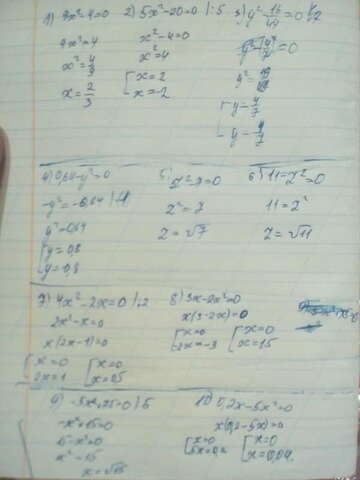 1) 9x²-4=0
9x²=4
x²=4/9
x=2/3
2) 5x²-20=0 |:5
x²-4=0
x²=4
[x=2
[x=-2
3) y²-16/49=0
y²=16/49
[y=4/7
4) 0,64-y²=0
-y²=-0,64
y²=0,64
[y=0,8
[y=0,8
5) z²-7=0
z²=7
z=√7
6) 11-z²=0
11=z²
z=√11
4x²-2x=0 |:2
2x²-x=0
x(2x-1)=0
[x=0
[2x=1
[x=0
[x=0,5
8) 3x-2x²=0
x(3-2x)=0
[x=0
[2x=-3
[x=0
[x=15
-x²+15=0
15-x²=0
x²=15
x=√15
10 0,2x-5x²=0
x(0,2-5x)=0
[x=0
[x=0
[x=0,04